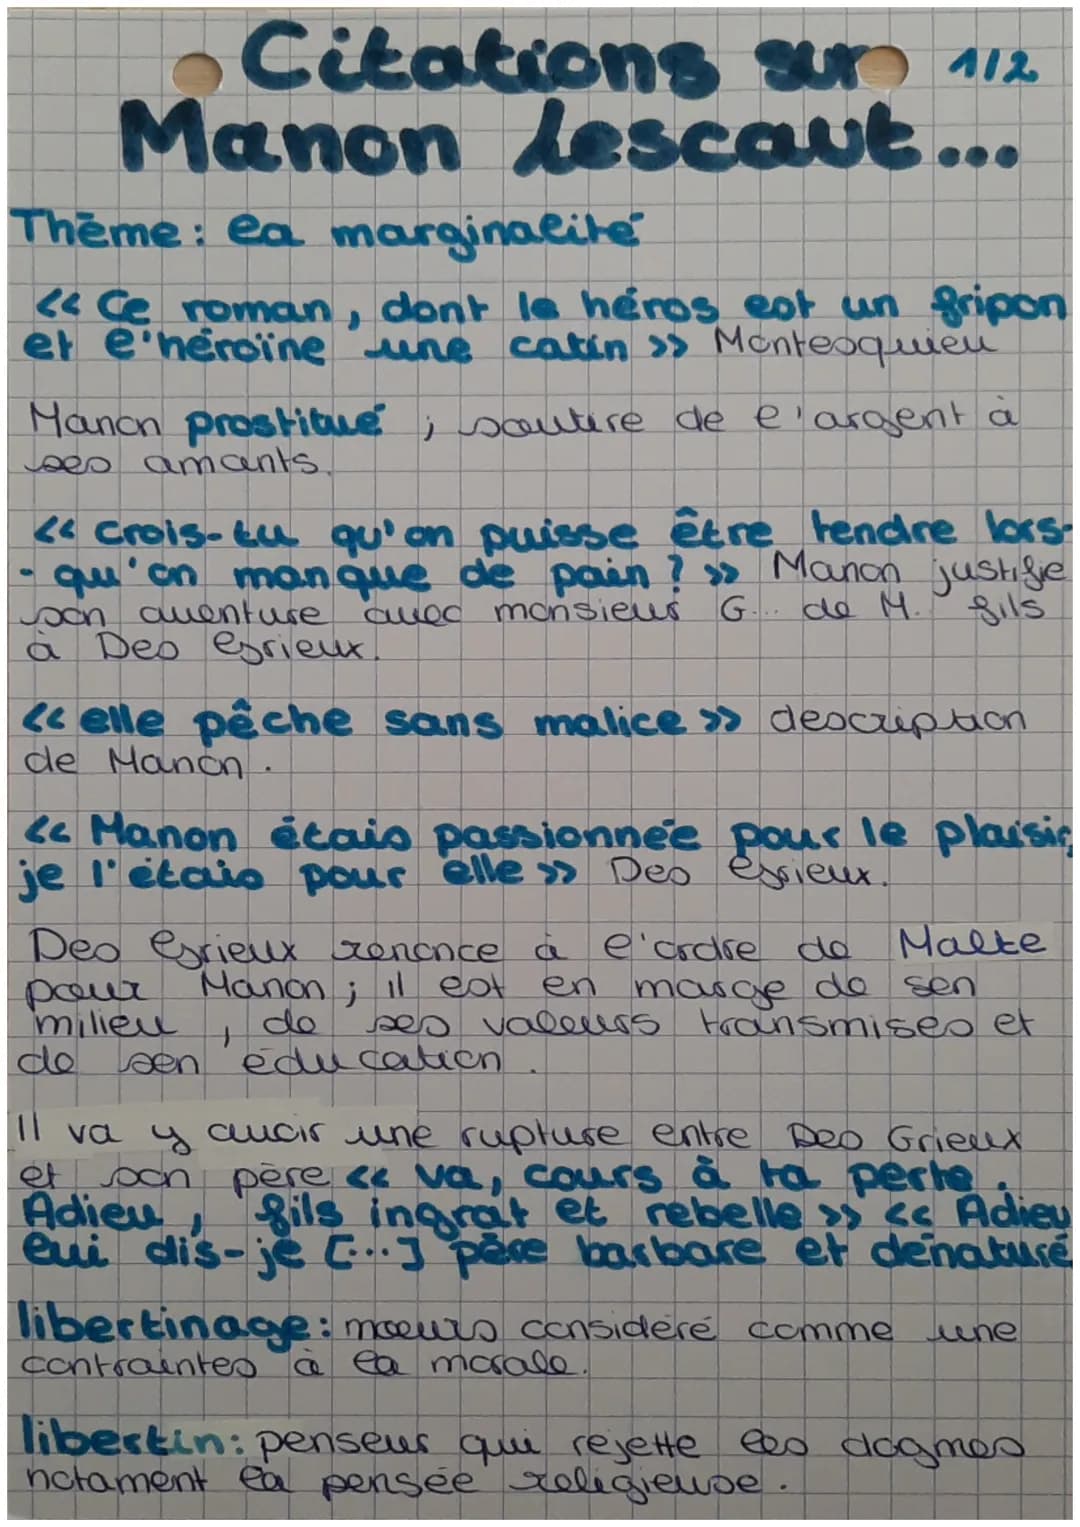 Citations sur 1/2
Manon Lescaut...
Thème : la marginalité
<< Ce roman, dont le héros est un fripon
et l'héroïne une catin >> Montesquieu
Manon prostitué ; soutire de l'argent à
ses amants.
<< Crois-tu qu'on puisse être tendre lors-
- qu'on manque de pain ? >> Manon justifie
son aventure avec monsieur G... de M. fils
à Des Grieux.
<< elle pêche sans malice >> description
de Manon.
<< Manon étais passionnée pour le plaisir,
je l'étais pour elle >> Des Grieux.
Des Grieux renonce à l'ordre de Malte
pour Manon ; il est en marge de son
milieu, de ses valeurs transmises et
de son éducation.
Il va y avoir une rupture entre Des Grieux
et son père << va, cours à ta perte.
Adieu, fils ingrat et rebelle >> << Adieu
lui dis-je [...] père barbare et dénaturé
libertinage : mœurs considéré comme une
contraintes à la morale.
libertin : penseur qui rejette les dogmes
notament la pensée religieuse.